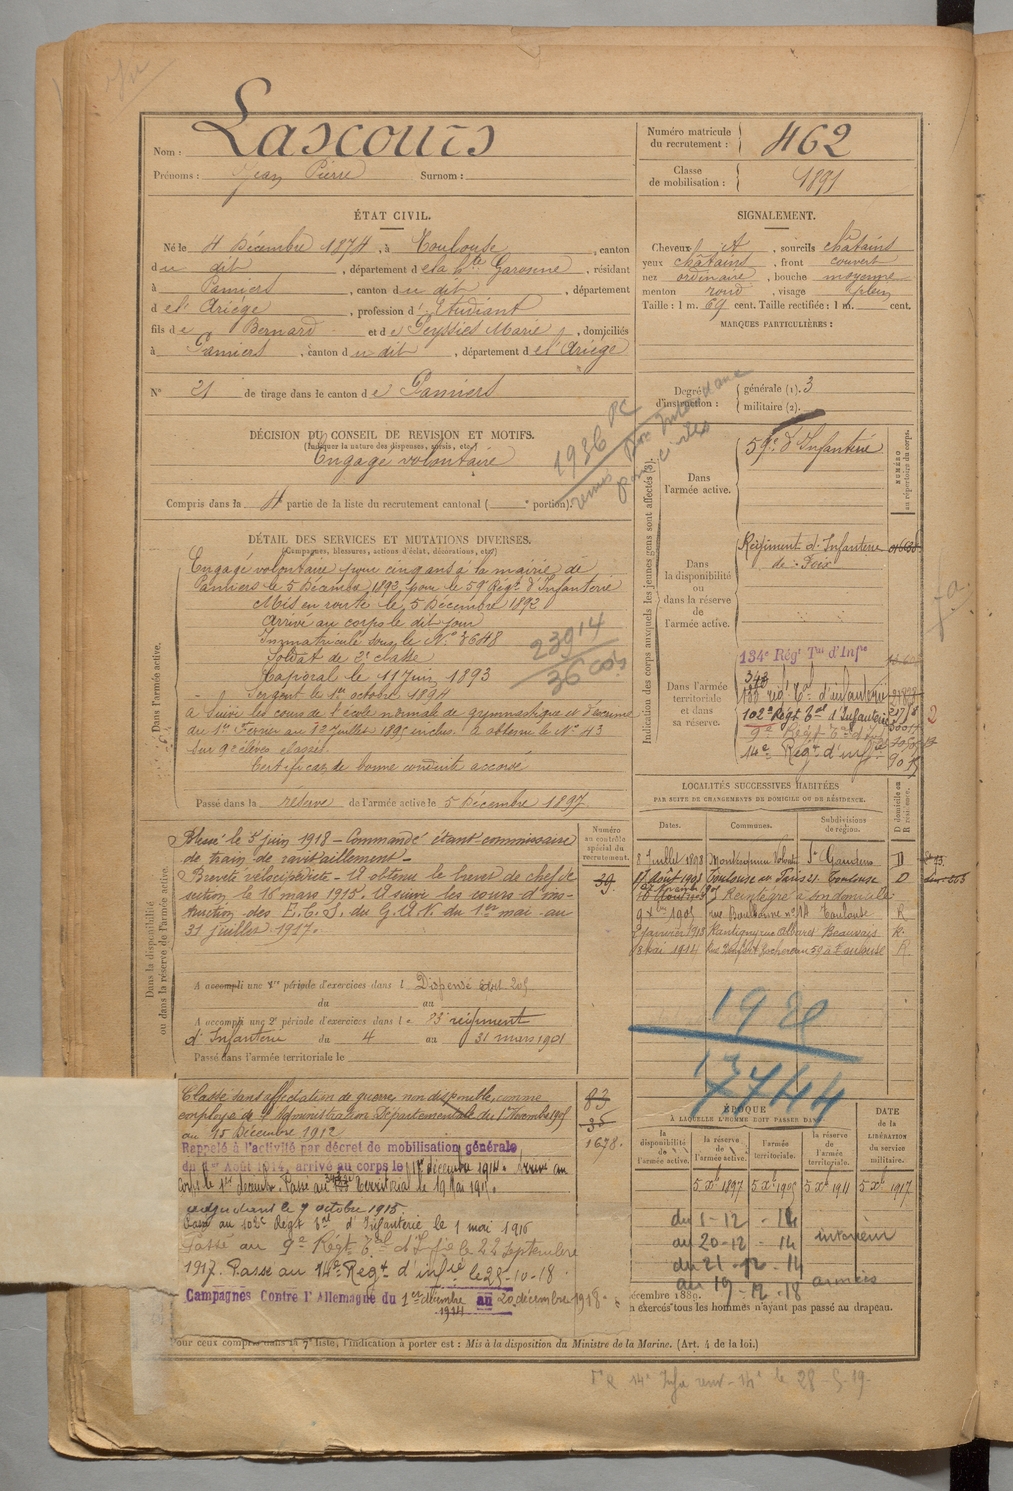 Nom : Lascours
Prénoms : Jean Pierre Surnom :
Numéro matricule du recrutement : 462
Classe de mobilisation : 1891
ÉTAT CIVIL.
Né le 4 Décembre 1874, à Toulouse, canton
du dit, département de la Hte Garonne, résidant
à Pamiers, canton du dit, département
de l'Ariège, profession d'Etudiant
fils de Bernard et de Peyssies Marie, domiciliés
à Pamiers, canton du dit, département de l'Ariège
N° 21 de tirage dans le canton de Pamiers
SIGNALEMENT.
Cheveux, sourcils châtains
yeux châtains, front couvert
nez ordinaire, bouche moyenne
menton rond, visage plein
Taille : 1 m. 69 cent. Taille rectifiée : 1 m. cent.
MARQUES PARTICULIÈRES :
Degré d'instruction : générale (1). 3
militaire (2).
DÉCISION DU CONSEIL DE REVISION ET MOTIFS.
(Indiquer la nature des dispenses, sursis, etc.)
Engagé volontaire
Compris dans la 4 partie de la liste du recrutement cantonal ( e portion).
1936 PC
remis par Intendance
DÉTAIL DES SERVICES ET MUTATIONS DIVERSES.
(Campagnes, blessures, actions d'éclat, décorations, etc.)
Dans l'armée active.
Engagé volontaire pour cinq ans à la mairie de
Pamiers le 5 Décembre 1892, pour le 59e Régt d'Infanterie
Mis en route le 5 Décembre 1892
Arrivé au corps le dit jour
Immatriculé sous le N° 3648
Soldat de 2e classe
Caporal le 11 Juin 1893
Sergent le 1er octobre 1894
a suivi les cours de l'école normale de gymnastique et d'escrime
du 1er Février au 1er Juillet 1895 inclus. a obtenu le N° 43
sur 90 élèves classés.
Certificat de bonne conduite accordé
Passé dans la réserve de l'armée active le 5 Décembre 1897.
23914
Indication des corps auxquels les jeunes gens sont affectés (3).
NUMÉRO au répertoire du corps.
Dans l'armée active.
59e d'Infanterie
Dans la disponibilité ou dans la réserve de l'armée active.
Régiment d'Infanterie
de Foix
Dans l'armée territoriale et dans sa réserve.
134e Régt Tal d'Infie
133 rég. Tal d'infanterie
102e Régt Tal d'Infanterie
9e Régt Tal d'Inf
14e Régt d'infie
Dans la disponibilité ou dans la réserve de l'armée active.
Numéro au contrôle spécial du recrutement.
39.
Blessé le 5 juin 1918 - Commandé étant commissaire
de train de ravitaillement -
Breveté vélocipédiste - A obtenu le brevet de chef de
section le 16 mars 1915. A suivi les cours d'ins-
truction des E. E. S. du G. A. N. du 1er mai au
31 juillet 1917.
A accompli une 1re période d'exercices dans l Dispensé
du au
A accompli une 2e période d'exercices dans le 83e régiment
d'Infanterie du 4 au 31 mars 1901
Passé dans l'armée territoriale le
LOCALITÉS SUCCESSIVES HABITÉES
PAR SUITE DE CHANGEMENTS DE DOMICILE OU DE RÉSIDENCE.
Dates. Communes. Subdivisions de région. D domicile ou R résidence.
8 Juillet 1898 Montesquieu Volvestre St Gaudens D
11 Août 1901 Toulouse Toulouse D
Réintégré à son domicile
9 Xbre 1905 rue Boulbonne n° 14 Toulouse R
2 janvier 1913 Rantigny Beauvais R
8 mai 1914 rue Denfert Rochereau 50 à Toulouse R
1920
17744
Classé dans affectation de guerre, non disponible, comme
employé de l'Administration Départementale du 1er Novembre 1905
au 15 Décembre 1912
83
35
1678.
Rappelé à l'activité par décret de mobilisation générale
du 1er Août 1914, arrivé au corps le 1er décembre 1914. Arrivé au
corps le 1er décembre. Passé au Territorial le 19 Mai 1915.
adjudant le 7 octobre 1915.
Passé au 102e Régt Tal d'Infanterie le 1 mai 1916
Passé au 9e Régt Tal d'Infie le 22 septembre
1917. Passé au 14e Régt d'infie le 25-10-18.
Campagnes Contre l'Allemagne du 1er décembre 1914 au 20 décembre 1918.
ÉPOQUE
À LAQUELLE L'HOMME DOIT PASSER DANS
la disponibilité de l'armée active.
la réserve de l'armée active.
l'armée territoriale.
la réserve de l'armée territoriale.
DATE de la LIBÉRATION du service militaire.
5 Xbre 1897 5 Xbre 1905 5 Xbre 1911 5 Xbre 1917
du 1-12-14
au 20-12-14 intérieur
du 21-12-14
au 19-12-18 armées
écembre 1889.
n exercés tous les hommes n'ayant pas passé au drapeau.
Pour ceux compris dans la 7e liste, l'indication à porter est : Mis à la disposition du Ministre de la Marine. (Art. 4 de la loi.)